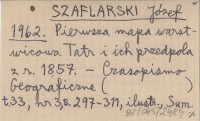 SZAFLARSKI Józef
1962. Pierwsza mapa wzret-
wicowa Tatr i ich przedpola
z r. 1857. – Czasopismo
Geograficzne (
t.33, nr 3, s. 297-311, ilustr., Sum.